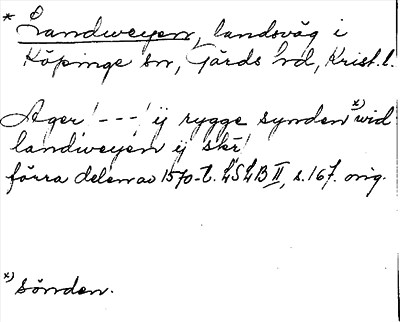 * Landweyen, landsväg i
Köpinge sn, Gärds hd, Krist. l.
Ager! ---! ij rygge synden x) wid
landweyen ij skr!
förra delen av 1570-t. LSLB II, s. 167. orig.
x) sönden.